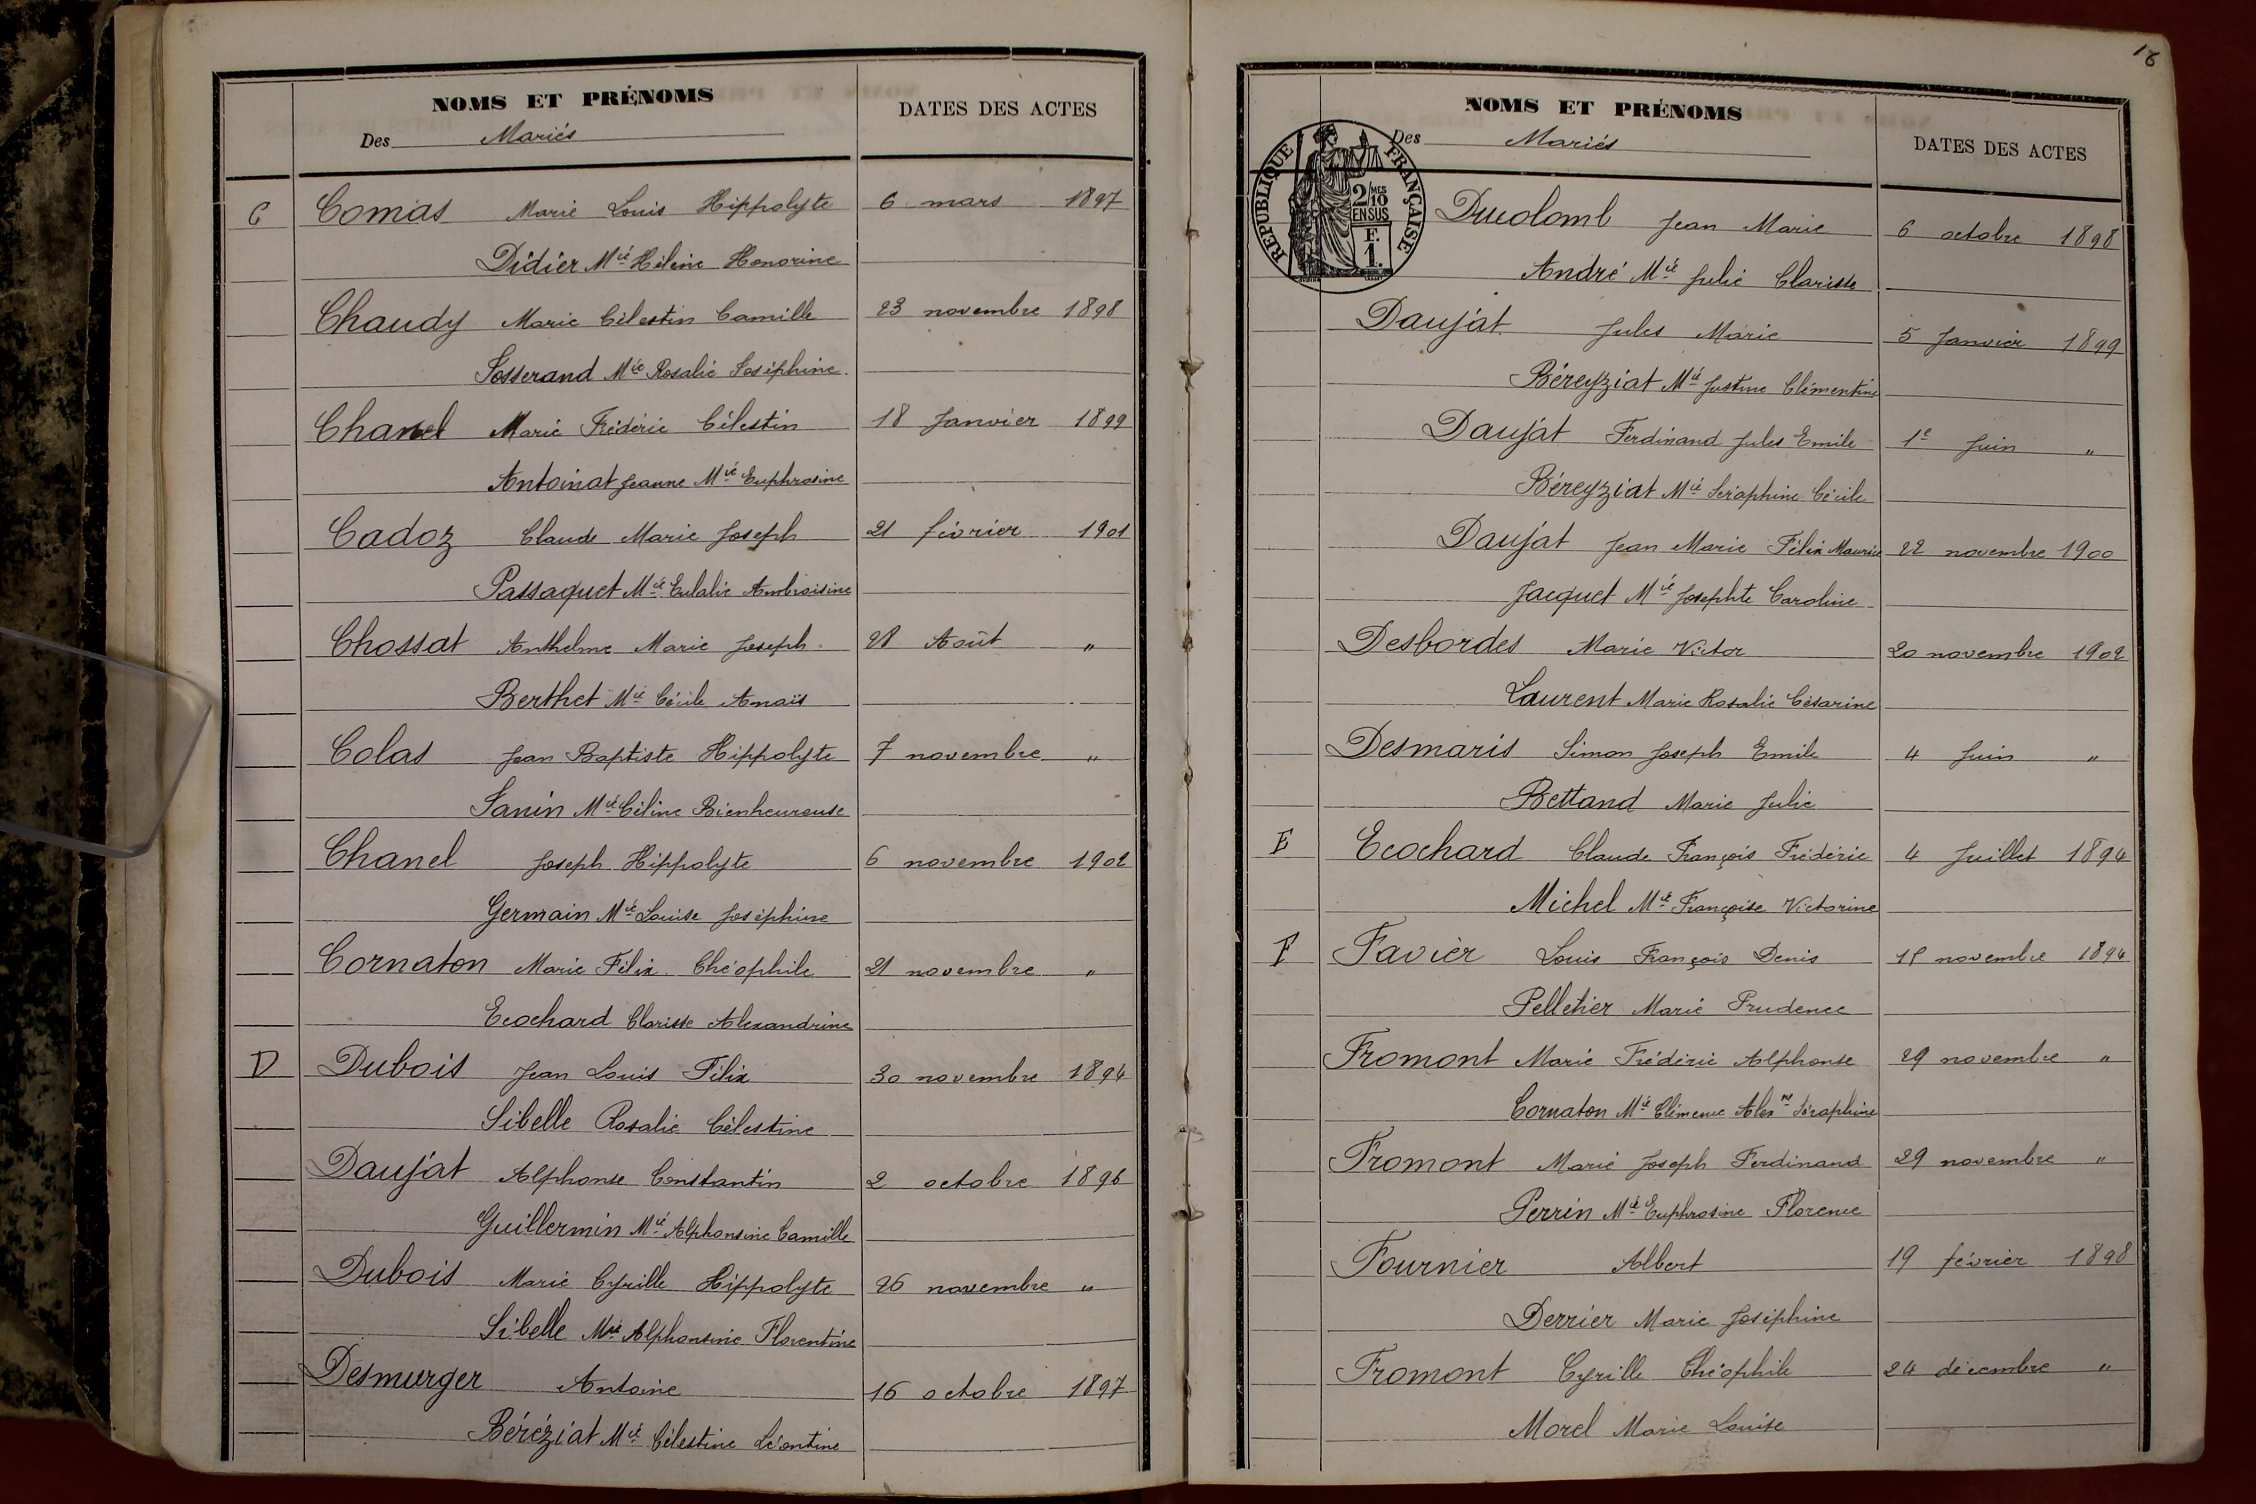 NOMS ET PRÉNOMS
Des Mariés
DATES DES ACTES
C Comas Marie Louis Hippolyte 6 mars 1897
Didier Mie Hélène Honorine
Chaudy Marie Célestin Camille 23 novembre 1898
Josserand Mie Rosalie Joséphine
Chanel Marie Frédéric Célestin 18 Janvier 1899
Antoinat Jeanne Mie Euphrosine
Cadoz Claude Marie Joseph 21 février 1901
Passaquet Mie Eulalie Ambroisine
Chossat Anthelme Marie Joseph 28 Août "
Berthet Mie Cécile Anaïs
Colas Jean Baptiste Hippolyte 7 novembre "
Janin Mie Céline Bienheureuse
Chanel Joseph Hippolyte 6 novembre 1902
Germain Mie Louise Joséphine
Cornaton Marie Félix Théophile 21 novembre "
Ecochard Clarisse Alexandrine
D Dubois Jean Louis Félix 30 novembre 1894
Sibelle Rosalie Célestine
Daujat Alphonse Constantin 2 octobre 1896
Guillermin Mie Alphonsine Camille
Dubois Marie Cyrille Hippolyte 26 novembre "
Sibelle Mie Alphonsine Florentine
Desmurger Antoine 16 octobre 1897
Béréziat Mie Célestine Léontine
18
NOMS ET PRÉNOMS
Des Mariés
DATES DES ACTES
REPUBLIQUE FRANÇAISE
2/10 MES
EN SUS
F.
1.
Ducolomb Jean Marie 6 octobre 1898
André Mie Julie Clarisse
Daujat Jules Marie 5 Janvier 1899
Béreyziat Mie Justine Clémentine
Daujat Ferdinand Jules Emile 1e Juin "
Béreyziat Mie Séraphine Cécile
Daujat Jean Marie Félix Maurice 22 novembre 1900
Jacquet Mie Josephte Caroline
Desbordes Marie Victor 20 novembre 1902
Laurent Marie Rosalie Césarine
Desmaris Simon Joseph Emile 4 Juin "
Bettand Marie Julie
E Ecochard Claude François Frédéric 4 Juillet 1894
Michel Mie Françoise Victorine
F Favier Louis François Denis novembre 1894
Pelletier Marie Prudence
Fromont Marie Frédéric Alphonse 29 novembre "
Cornaton Mie Clémence Alexne Séraphine
Fromont Marie Joseph Ferdinand 29 novembre "
Perrin Mie Euphrosine Florence
Fournier Albert 19 février 1898
Derrier Marie Joséphine
Fromont Cyrille Théophile 24 décembre "
Morel Marie Louise